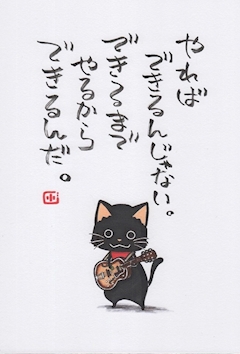 やれば
できるんじゃない。
できるまで
やるから
できるんだ。